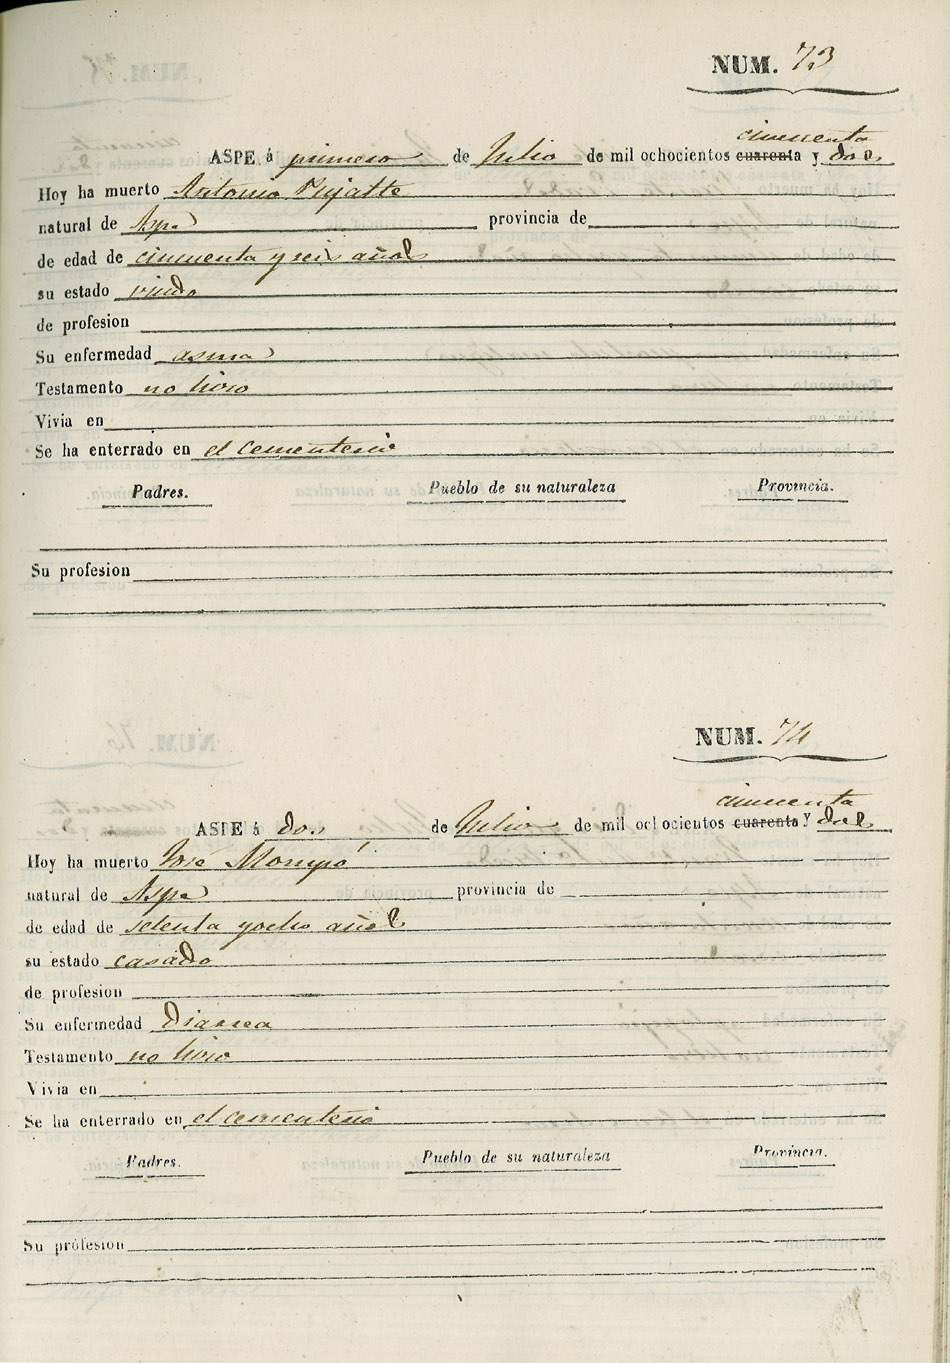 NUM. 73
cincuenta
ASPE á primero de Julio de mil ochocientos cuarenta y dos
Hoy ha muerto Antonio
natural de Aspe provincia de
de edad de cincuenta y seis años
su estado viudo
de profesion
Su enfermedad asma
Testamento no hizo
Vivia en
Se ha enterrado en el cementerio
Padres. Pueblo de su naturaleza Provincia.
Su profesion
NUM. 74
cincuenta
ASPE á dos de Julio de mil ochocientos cuarenta y dos
Hoy ha muerto José Mompó
natural de Aspe provincia de
de edad de setenta y ocho años
su estado casado
de profesion
Su enfermedad Diarrea
Testamento no hizo
Vivia en
Se ha enterrado en el cementerio
Padres. Pueblo de su naturaleza Provincia.
Su profesion